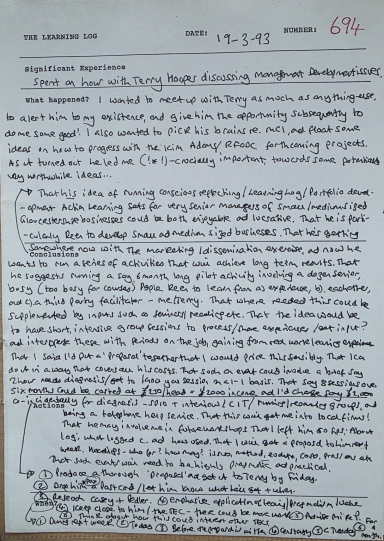 THE LEARNING LOG DATE: 19-3-93 NUMBER: 694
Significant Experience
Spent an hour with Terry Hooper discussing Management Development issues.
What happened? I wanted to meet up with Terry as much as anything else,
to alert him to my existence, and give him the opportunity subsequently to
do me some good! I also wanted to pick his brains re. MCI, and float some
ideas on how to progress with the forthcoming projects.
As it turned out he led me (!*!) - crucially important, towards some potentially
very worthwhile ideas...
That his idea of running conscious reflecting/Learning Log/Portfolio devel-
-opment Action Learning sets for very senior managers of small/medium sized
Gloucestershire businesses could be both enjoyable and lucrative. That he is parti-
-cularly keen to develop small and medium sized businesses. That he's getting
somewhere now with the marketing/dissemination exercise, and now he
Conclusions
wants to run a series of activities that will achieve long term results. That
he suggests running a say 6 month long pilot activity involving a dozen senior,
busy (too busy for courses) people keen to learn from a) experience, b) each other,
and c) a third party facilitator - me/Terry. That where needed this could be
supplemented by inputs such as seminars/reading etc. That the idea would be
to have short, intensive group sessions to process/share experiences/get input?
and intersperse these with periods on the job, gaining from real work learning experience
That I said I'd put a 'proposal' together that I would price this sensibly. That I can
do it in a way that covers all his costs. That such an event could involve a brief say
2 hour needs diagnosis/get to know you session on a 1-1 basis. That say 8 sessions over
six months could be costed at £ /head = £ income, and I'd charge say £2,000
Actions
being a telephone help service. That this will get me into local firms!
That he may involve me in future workshops That left him 80 hrs. About
logs, what logged and how used. That I will get a proposal to him next
week,
That such events will need to be highly pragmatic and practical.
① Produce a thorough 'proposal' and get it to Terry by Friday.
② Drop him a Postcard/let him know what he'll get & when.
③ letter. ④ Emphasise application of learning/
When? ⑤ Keep close to him/the TEC - there could be more work
⑥ Think about how this could interest other TECs.
① During next week ② Today ③ Before